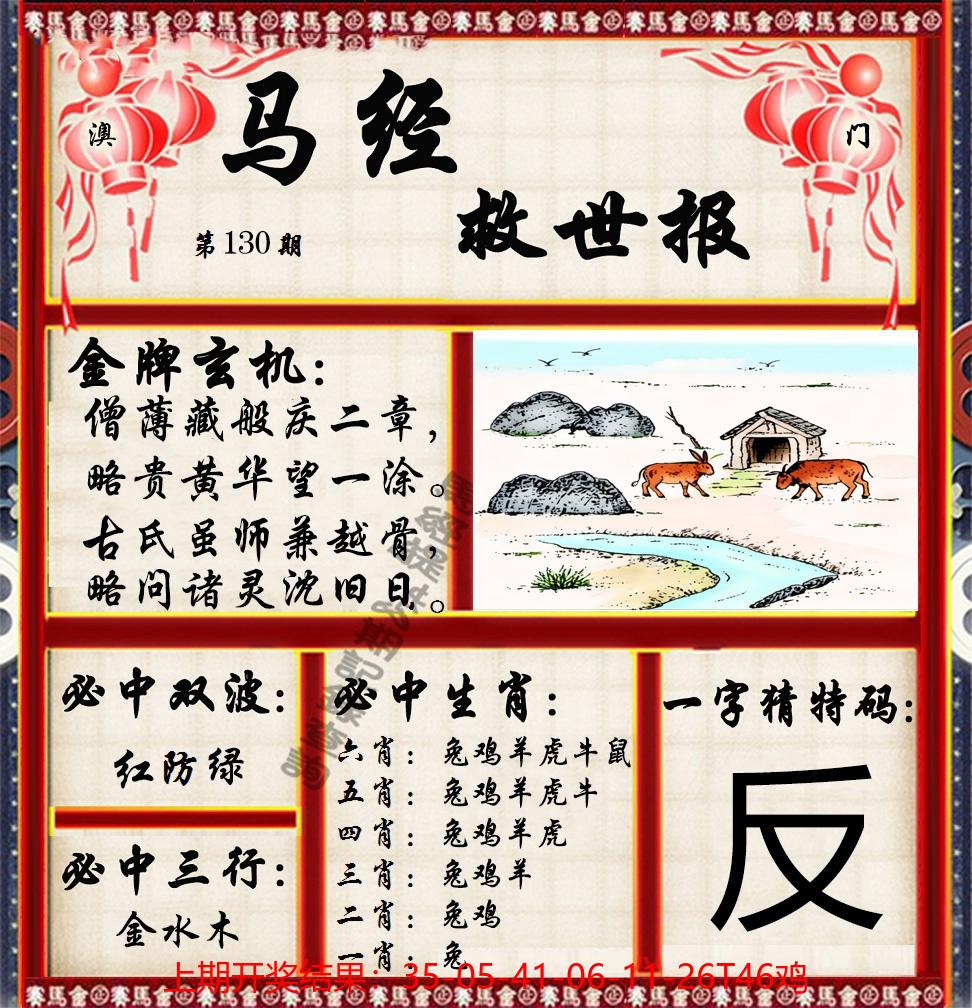 澳
门
马经
救世报
第130期
金牌玄机:
僧薄藏般庆二章,
略贵黄华望一涂。
古氏虽师兼越骨,
略问诸灵沈旧日。
必中双波:
红防绿
必中三行:
金水木
必中生肖:
六肖: 兔鸡羊虎牛鼠
五肖: 兔鸡羊虎牛
四肖: 兔鸡羊虎
三肖: 兔鸡羊
二肖: 兔鸡
一肖: 兔
一字猜特码:
反
上期开奖结果：35-05-41-06-11-26T46鸡